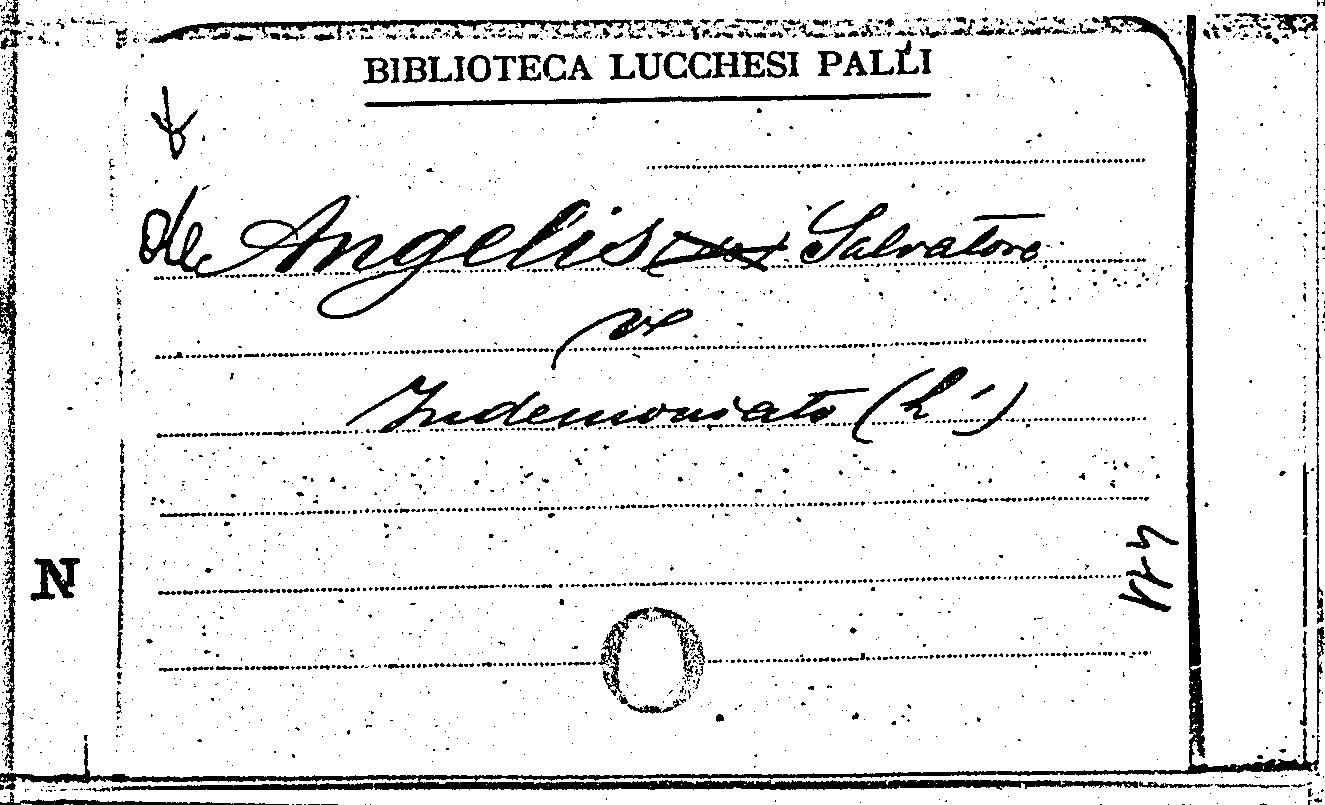 BIBLIOTECA LUCCHESI PALLI
de Angelis Salvatore
Indemoniato (L')
N